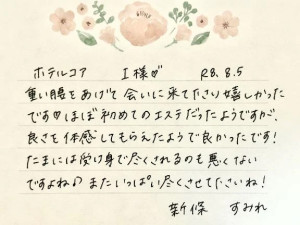 ホテルコア I様♡ R8.8.5
重い腰をあげて 会いに来て下さり嬉しかった
です♡ほぼ初めてのエステだったようですが、
良さを体感してもらえたようで良かったです!
たまには受け身で尽くされるのも悪くない
ですよね♪ またいっぱい尽くさせて下さいね!
新保 すみれ